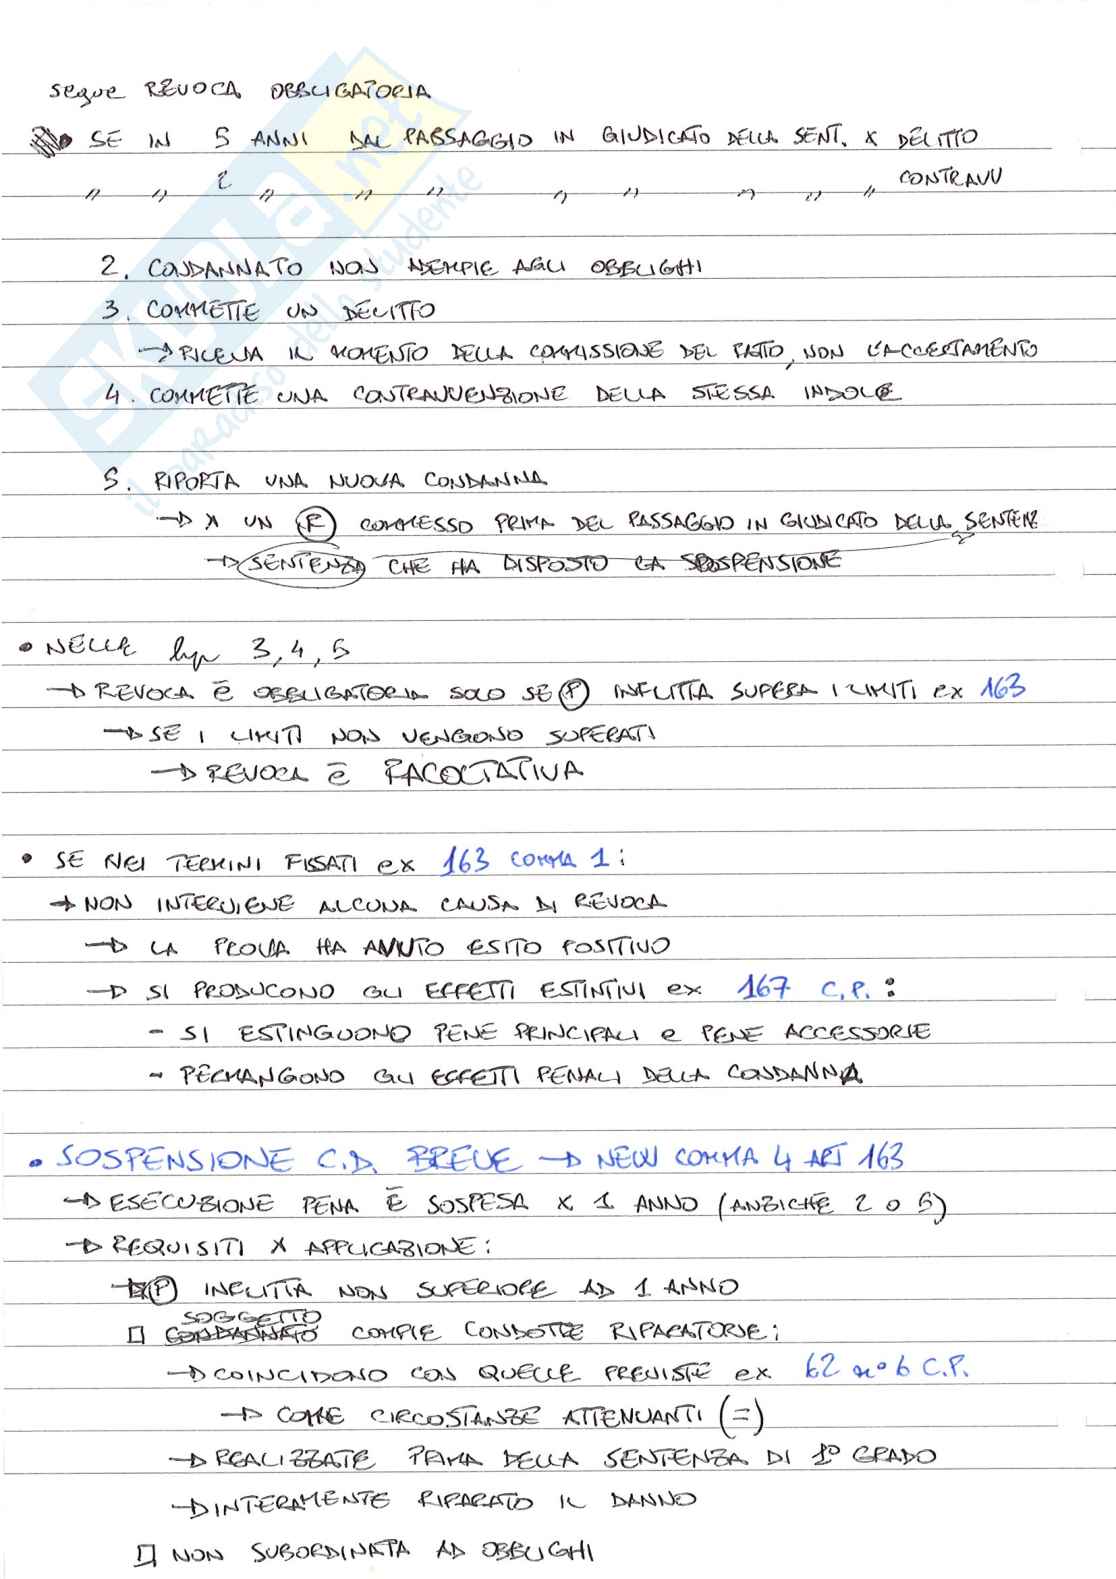 segue REVOCA OBBLIGATORIA
SE IN 5 ANNI DAL PASSAGGIO IN GIUDICATO DELLA SENT. X DELITTO
" " 2 " " " " " " " " CONTRAVV
2. CONDANNATO NON ADEMPIE AGLI OBBLIGHI
3. COMMETTE UN DELITTO
→ RILEVA IL MOMENTO DELLA COMMISSIONE DEL FATTO, NON L'ACCERTAMENTO
4. COMMETTE UNA CONTRAVVENZIONE DELLA STESSA INDOLE
5. RIPORTA UNA NUOVA CONDANNA
→ X UN (R) COMMESSO PRIMA DEL PASSAGGIO IN GIUDICATO DELLA SENTENZ
→ SENTENZA CHE HA DISPOSTO LA SOSPENSIONE
• NELLE hp 3, 4, 5
→ REVOCA È OBBLIGATORIA SOLO SE (P) INFLITTA SUPERA I LIMITI ex 163
→ SE I LIMITI NON VENGONO SUPERATI
→ REVOCA È FACOLTATIVA
• SE NEI TERMINI FISSATI ex 163 COMMA 1:
→ NON INTERVIENE ALCUNA CAUSA DI REVOCA
→ LA PROVA HA AVUTO ESITO POSITIVO
→ SI PRODUCONO GLI EFFETTI ESTINTIVI ex 167 C.P.:
- SI ESTINGUONO PENE PRINCIPALI e PENE ACCESSORIE
- PERMANGONO GLI EFFETTI PENALI DELLA CONDANNA
• SOSPENSIONE C.D. BREVE → NEW COMMA 4 ART 163
→ ESECUZIONE PENA È SOSPESA X 1 ANNO (ANZICHÉ 2 O 5)
→ REQUISITI X APPLICAZIONE:
→ (P) INFLITTA NON SUPERIORE AD 1 ANNO
□ SOGGETTO CONDANNATO COMPIE CONDOTTE RIPARATORIE:
→ COINCIDONO CON QUELLE PREVISTE ex 62 n° 6 C.P.
→ COME CIRCOSTANZE ATTENUANTI (=)
→ REALIZZATE PRIMA DELLA SENTENZA DI 1° GRADO
→ INTERAMENTE RIPARATO IL DANNO
□ NON SUBORDINATA AD OBBLIGHI
SKUOLA.net
il paradiso dello studente